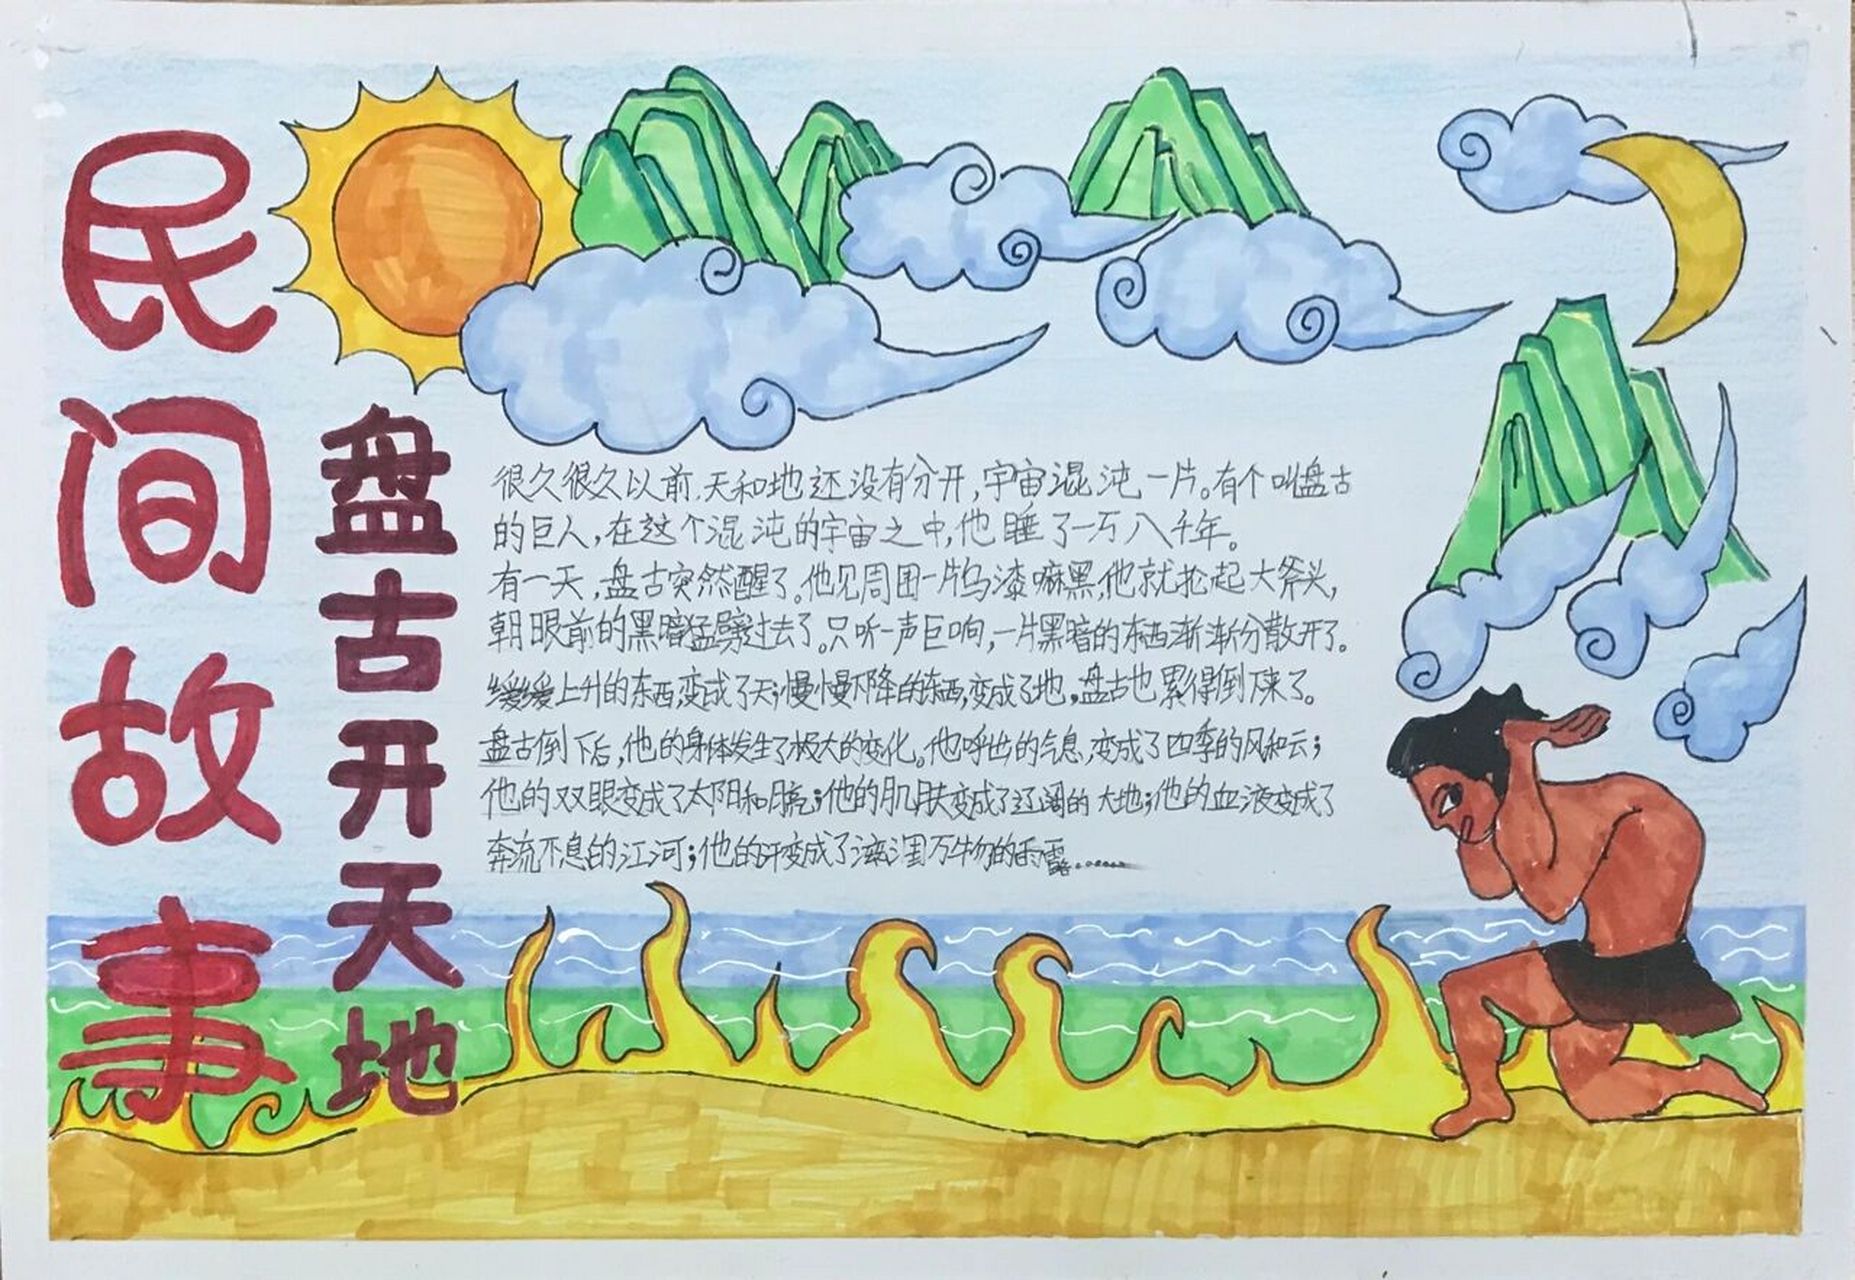 民间故事
盘古开天地
很久很久以前,天和地还没有分开,宇宙混沌一片。有个叫盘古
的巨人,在这个混沌的宇宙之中,他睡了一万八千年。
有一天,盘古突然醒了。他见周围一片乌漆嘛黑,他就抡起大斧头,
朝眼前的黑暗猛劈过去了。只听一声巨响,一片黑暗的东西渐渐分散开了。
缓缓上升的东西,变成了天;慢慢下降的东西,变成了地,盘古也累得倒下来了。
盘古倒下后,他的身体发生了极大的变化。他呼出的气息,变成了四季的风和云;
他的双眼变成了太阳和月亮;他的肌肤变成了辽阔的大地;他的血液变成了
奔流不息的江河;他的汗变成了滋润万物的雨露……